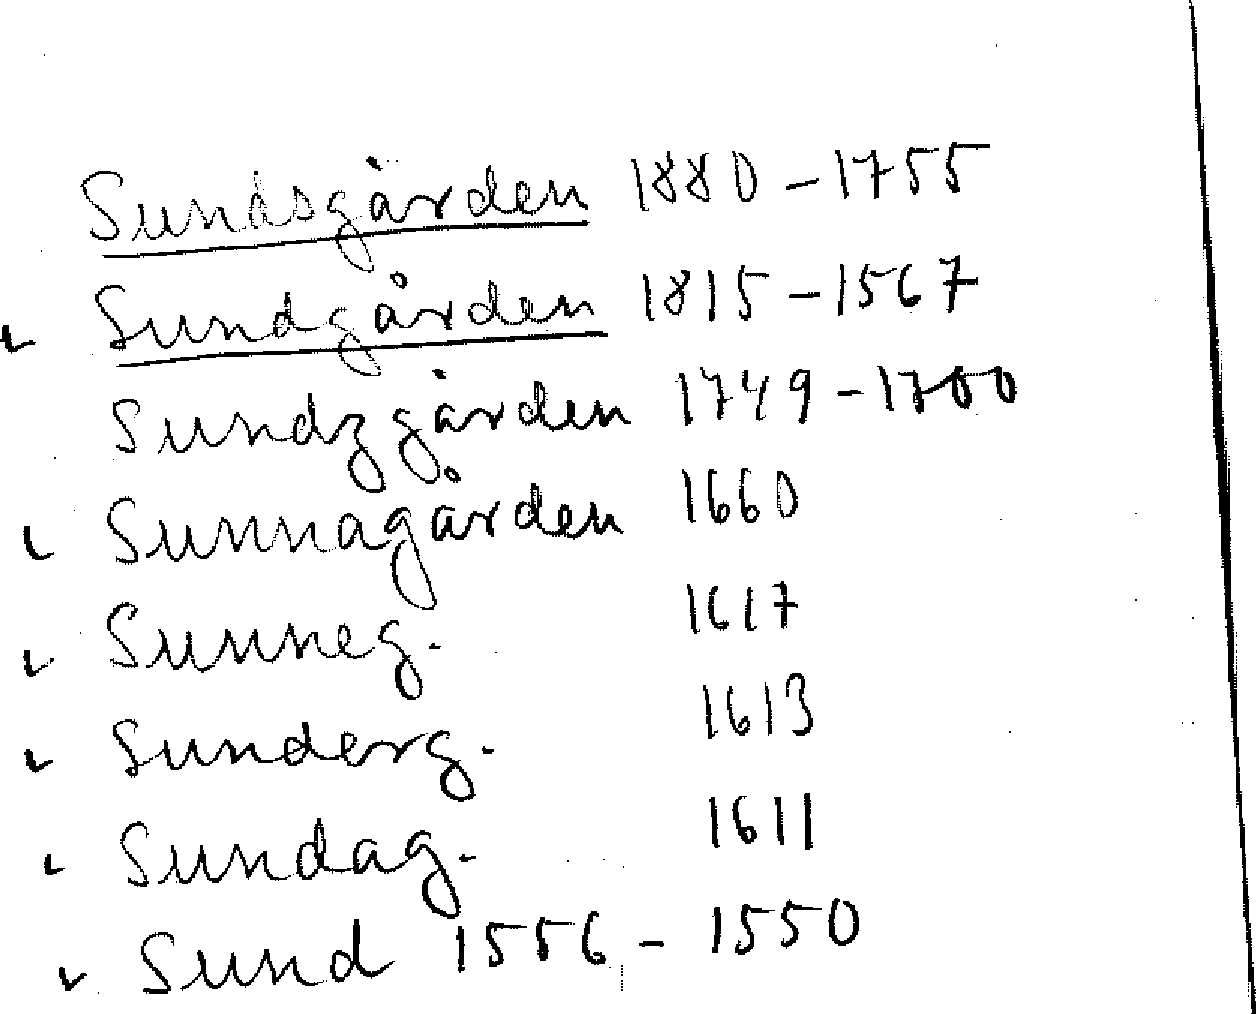 Sundsgården 1880-1755
Sundgården 1815-1567
Sundzgården 1749-1700
Sunnagården 1660
Sunneg. 1617
Sunderg. 1613
Sundag. 1611
Sund 1556 - 1550